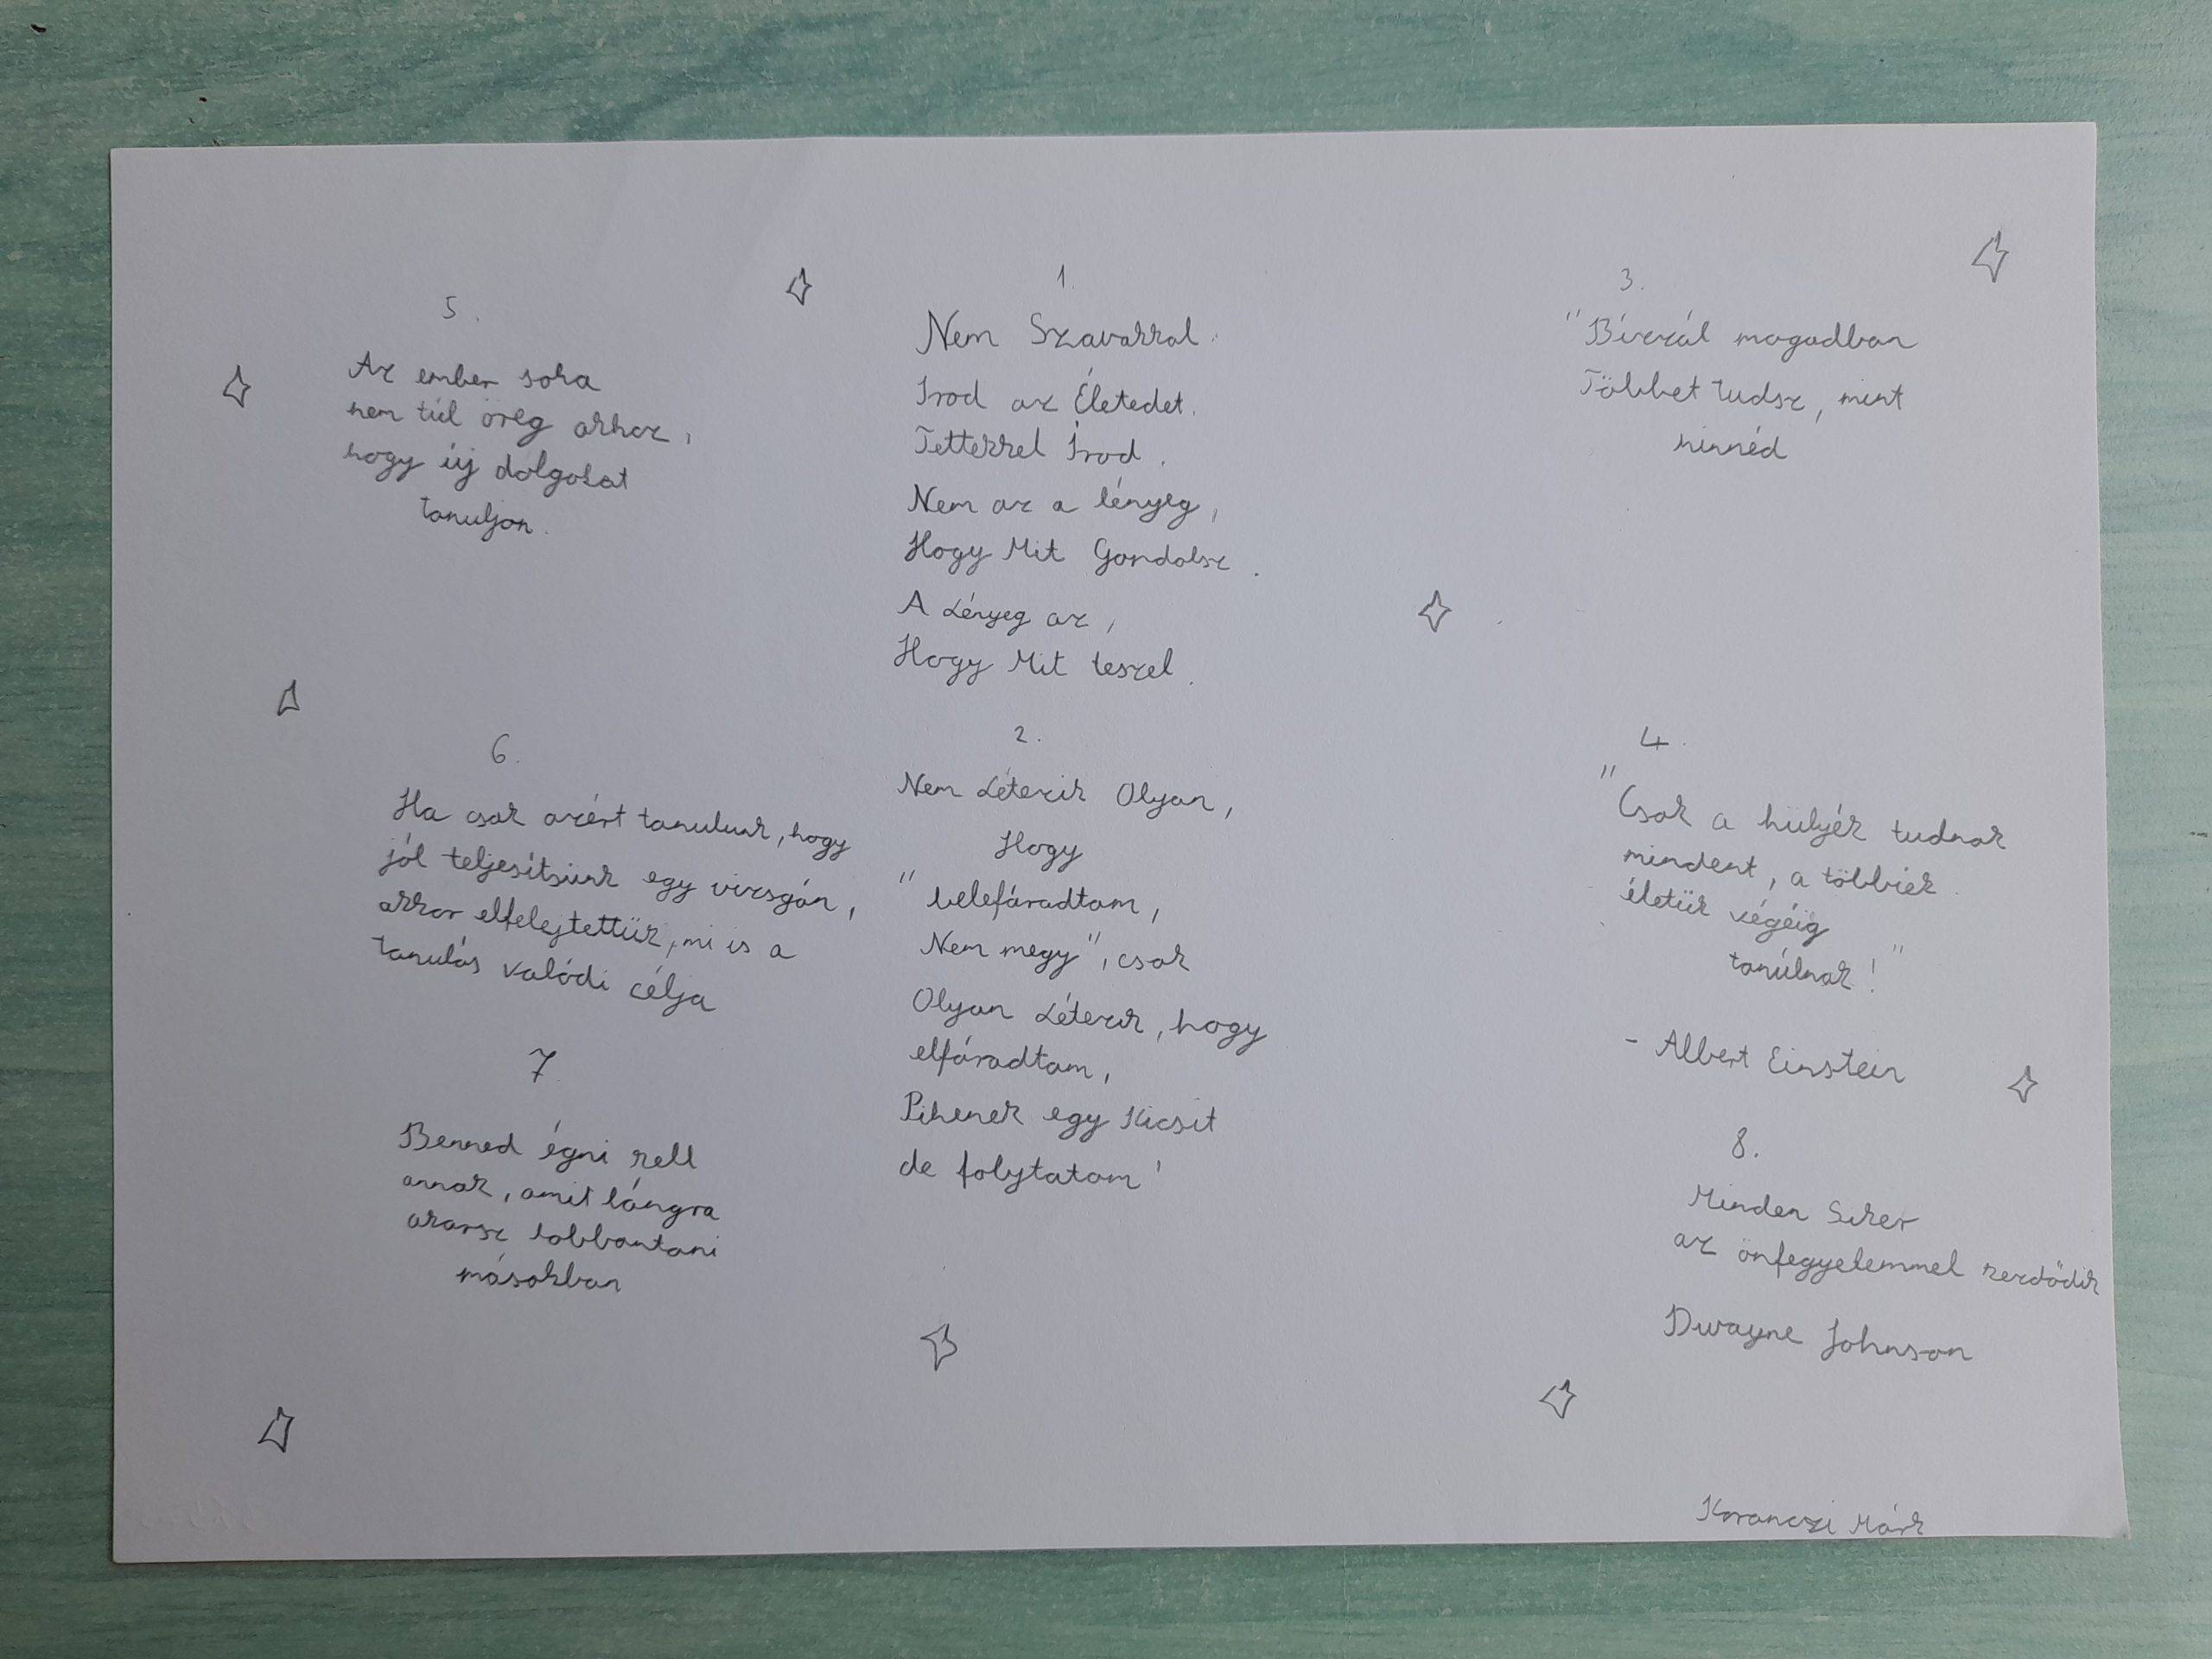 1.
Nem Szavakkal
Írod az Életedet.
Tettekkel Írod.
Nem az a lényeg,
Hogy Mit Gondolsz.
A Lényeg az,
Hogy Mit teszel.
2.
Nem Létezik Olyan,
Hogy
"belefáradtam,
Nem megy", csak
Olyan Létezik, hogy
elfáradtam,
Pihenek egy Kicsit
de folytatom!
3.
"Bízzál magadban
Többet tudsz, mint
hinnéd
4.
"Csak a hülyék tudnak
mindent, a többiek
életük végéig
tanúlnak!"
- Albert Einstein
5.
Az ember soha
nem túl öreg ahhoz,
hogy új dolgokat
tanuljon.
6.
Ha csak azért tanulunk, hogy
jól teljesítsünk egy vizsgán,
akkor elfelejtettük, mi is a
tanulás valódi célja
7
Benned égni kell
annak, amit lángra
akarsz lobbantani
másokban
8.
Minden Siker
az önfegyelemmel kezdődik
Dwayne Johnson
Karanczi Márk